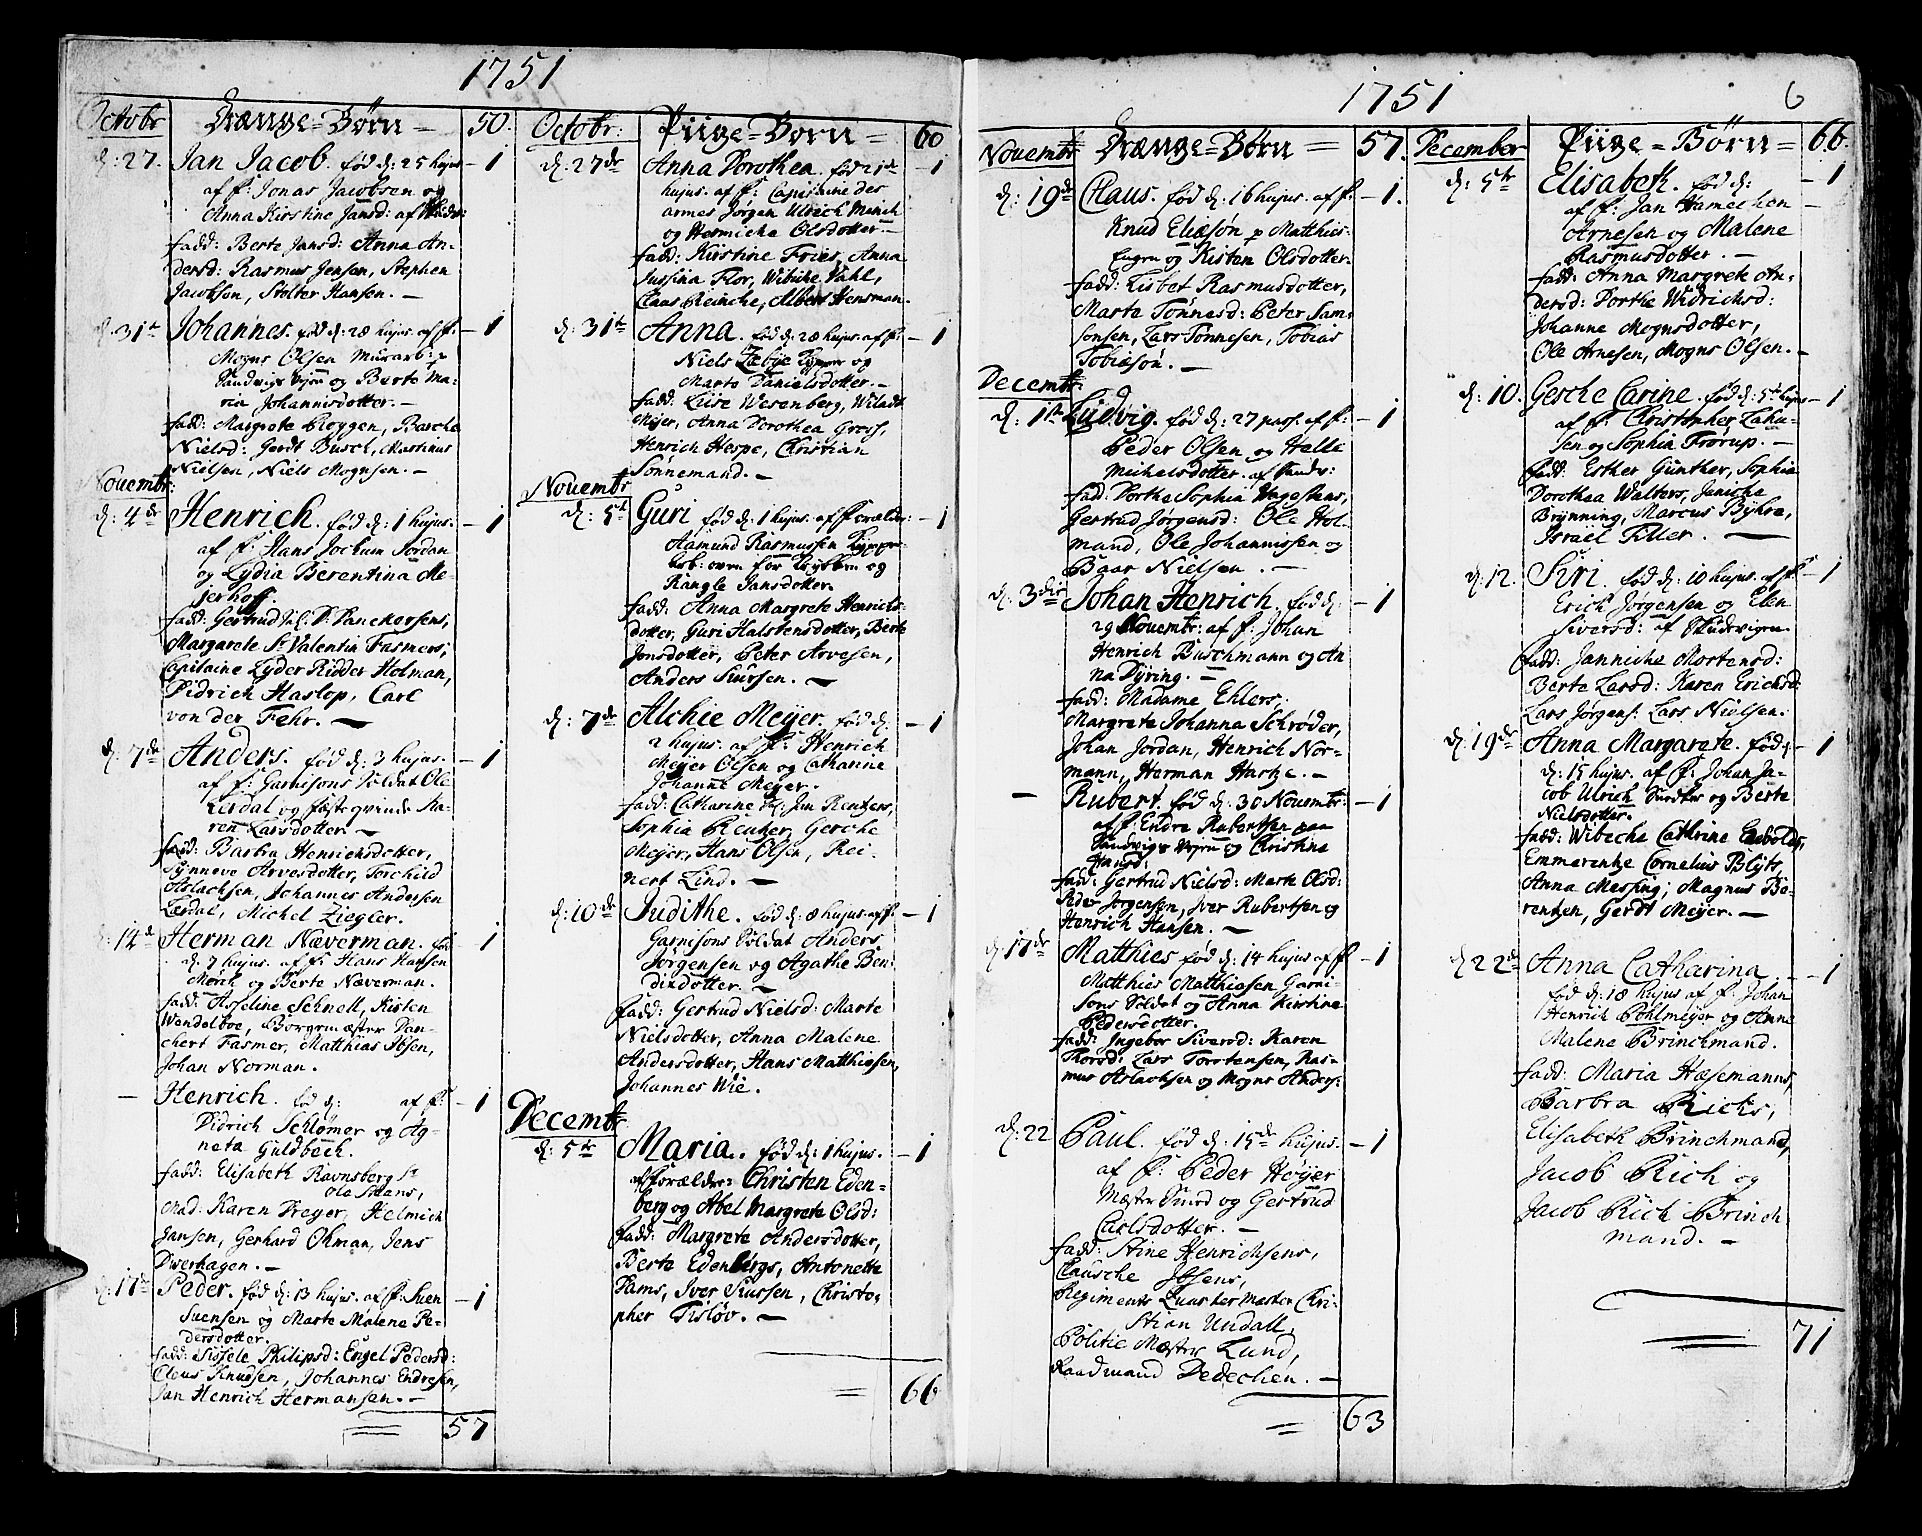 1751
Octobr Drænge-Børn - 50.
d: 27. Jan Jacob. fød d: 25 hujus - 1
af f: Jonas Jacobsen og
Anna Kirstine Jansd:
fadd: Berte Jansd: Anna An-
dersd: Rasmus Jensen, Stephen
Jacobsen, Stolter Hansen. -
d: 31te Johannes. fød d: 28 hujus. af f: - 1
Mogns Olsen Murarb:
Sandvigs Vejen og Berte Ma-
ria Johannisdotter. -
fadd: Margrete Røggen, Barche
Nielsd: Gerdt Busch, Martinus
Nielsen, Niels Mognsen. -
Novembr:
d: 4de Henrich. fød d: 1 hujus. - 1
af f: Hans Jochum Jordan
og Lydia Berentina Me-
jerhoff.
fadd: Gertrud Sl. D: Danckertsens,
Margarete Sr Valentin Fasmers,
Capitaine Lyder Ridder Holman,
Didrich Haslop, Carl
von der Fehr. -
d: 7de Anders. fød d: 3 hujus. - 1
af f: Garnisons Soldat Ole
Lerdal og fæsteqvinde Ka-
ren Larsdotter -
fadd: Barbra Henrichsdotter,
Synneve Arvesdotter, Torchild
Aslachsen, Johannes Andersen
Lærdal, Michel Ziegler.
d: 14de Herman Næverman. fød - 1
d. 7 hujus. af f: Hans Hansen
Mørch og Berte Næverman.
fadd: Asseline Schnell, Kisten
Wendelboe, Borgemæster Dan-
chert Fasmer, Matthias Ibsen,
Johan Norman.
- Henrich. fød d: af f: - 1
Didrich Schlømer og Ag-
neta Guldbech.
fadd: Elisabeth Ravnsberg Sr
Ole Smans,
Mad: Karen Freyer, Helmich
Jansen, Gerhard Ohman, Jens
Dwerhagen. -
d: 17de Peder. fød d: 13 hujus. af f: Suen - 1
Suensen og Marte Malene Pe-
dersdotter.
fadd: Sissele Philipsd: Engel Pedersd:
Claus Knudsen, Johannes Endresen,
Jan Henrich Hermansen. -
= 57
Octobr: Piige-Børn = 60
d: 27de Anna Dorothea. fød 21de - 1
hujus. af f: Capitaine des
armes Jørgen Ulrich Minch
og Hermiche Olsdotter. -
fadd: Kirstine Fries, Anna
Jussina Flor, Wibiche Vahl,
Claas Reinche, Albert Hensman.
d: 31te Anna. fød d: 28 hujus. af f: - 1
Niels Zæbye og
Marte Danielsdotter. -
fadd: Luise Wesenberg, Wiladt
Mejer, Anna Dorothea Gress,
Henrich Hespe, Christian
Sønnemand. -
Novembr
d: 5te Guri fød d: 1 hujus. af Forælder: - 1
Aamund Rasmussen
boe: oven for og
Rangle Jansdotter.
fadd: Anna Margrete Henrichs-
dotter, Guri Halstensdotter, Berte
Jonsdotter, Peter Arvesen,
Anders Siursen. -
d: 7de Alchie Mejer. fød d. - 1
2 hujus. af f: Henrich
Mejer Olsen og Catharine
Johanne Mejer.
fadd: Catharine Sl: Jan Rentzers,
Sophia Reuter, Gerche
Mejer, Hans Olsen, Rei-
nert Lind. -
d: 10de Judithe. fød d: 8 hujus. af f: - 1
Garnisons Soldat Anders
Jørgensen og Agathe Ben-
dixdotter. -
fadd: Gertrud Nielsd: Marte
Nielsdotter, Anna Malene
Andersdotter, Hans Matthiesen,
Johannes Wie.
Decembr
d: 5te Maria. fød d: 1 hujus. - 1
af Forælder: Christen Eden-
berg og Abel Margrete Olsd:
fadd: Margrete Andersdotter,
Berte Edenbergs, Antonette
Dams, Iver Siursen, Christo-
pher Tisløv. -
= 66
1751 6
Novembr Drænge-Børn = 57.
d: 19de Claus. fød d: 16 hujus. af f: - 1.
Knud Eliæsøn p Matthies-
Engen og Kisten Olsdotter.
fadd: Lisbet Rasmusdotter,
Marte Tønnesd: Peter Sam-
sonsen, Lars Tønnesen, Tobias
Tobiæsøn. -
Decembr:
d: 1te Ludvig. fød d: 27 pass. af f: - 1
Peder Olsen og Helle
Michelsdotter. af Sandv:
fad: Dorthe Sophia Vegestens,
Gertrud Jørgensd: Ole Hol-
mand, Ole Johannissen og
Baar Nielsen. -
d: 3die Johan Henrich. fød d: - 1
29 Novembr: af f: Johan
Henrich Buschmann og An-
na Dyring. -
fadd: Madame Ehlers,
Margrete Johanna Schrøder,
Johan Jordan, Henrich Nor-
mann, Herman Hartze. -
- Rubert. fød d: 30 Novembr: - 1
af f: Endre Rubertsen paa
Sandvigs Vejen og Christine
Knudsd:
fadd: Gertrud Nielsd: Marte Olsd:
Peder Jørgensen, Iver Rubertsen og
Henrich Hansen. -
d: 17de Matthies fød d: 14 hujus af f: - 1
Matthies Matthiesen Garni-
sons Soldat og Anna Kirstine
Pedersdotter.
fadd: Ingebor Siversd: Karen
Thorsd: Lars Torstensen, Ras-
mus Aslachsen og Mogns Anders:
d: 22 Paul. fød d: 15de hujus. - 1
af f: Peder Høyer
Mæster Smed og Gertrud
Carlsdotter. -
fadd: Stine Henrichsens,
Clausche Ibsens,
Regiments Quartermæster Chri-
stian Undall,
Politie Mæster Lund,
Raadmand Dedechen. -
= 63
December Piige-Børn = 66.
d: 5te Elisabeth. fød d: - 1
af f: Jan Hamechen -
Arnesen og Malene
Rasmusdotter. -
fadd: Anna Margrete An-
dersd: Dorthe Widrichsd:
Johanne Mognsdotter,
Ole Arnesen, Mogns Olsen. -
d: 10. Gesche Carine. fød d: 5te hujus - 1
af f: Christopher Zahu-
sen og Sophia Frorup. -
fadd: Esther Günther, Sophia
Dorothea Walters, Jeniche
Brynning, Marcus Bøhre,
Israel Filler. -
d: 12. Siri. fød d: 10 hujus. af f: - 1
Erich Jørgensen og Elen
Siversd: af Skudevigen.
fadd: Janniche Mortensd:
Berte Larsd: Karen Erichsd:
Lars Jørgens: Lars Nielsen.
d: 19de Anna Margarete. fød - 1
d: 15 hujus. af f: Johan Ja-
cob Ulrich og Berte
Nielsdotter.
fadd: Wibeche Cathrine Garbolds,
Emmerentze Cornelius Blyts,
Anna Mesping, Magnus Be-
rentzen, Gerdt Mejer. -
d 22de Anna Catharina - 1
fød d: 18 hujus af f: Johan
Henrich Pohlmejer og Anne
Malene Brinchmand.
fadd: Maria Hæsemanns,
Barbra Richs,
Elisabeth Brinchmand,
Jacob Rich og
Jacob Rich Brinch
mand. -
71